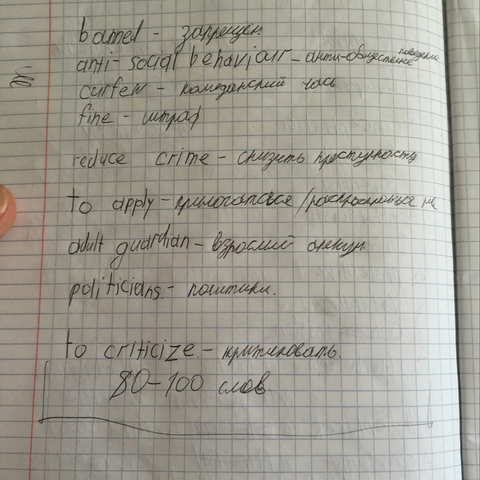 banned - запрещен
anti-social behaviour - анти-общественное поведение
curfew - комеданский час
fine - штраф
reduce crime - снизить преступность
to apply - прилогаться / распространяться на
adult guardian - взрослий опекун
politicians - политики.
to criticize - критиковать
80-100 слов